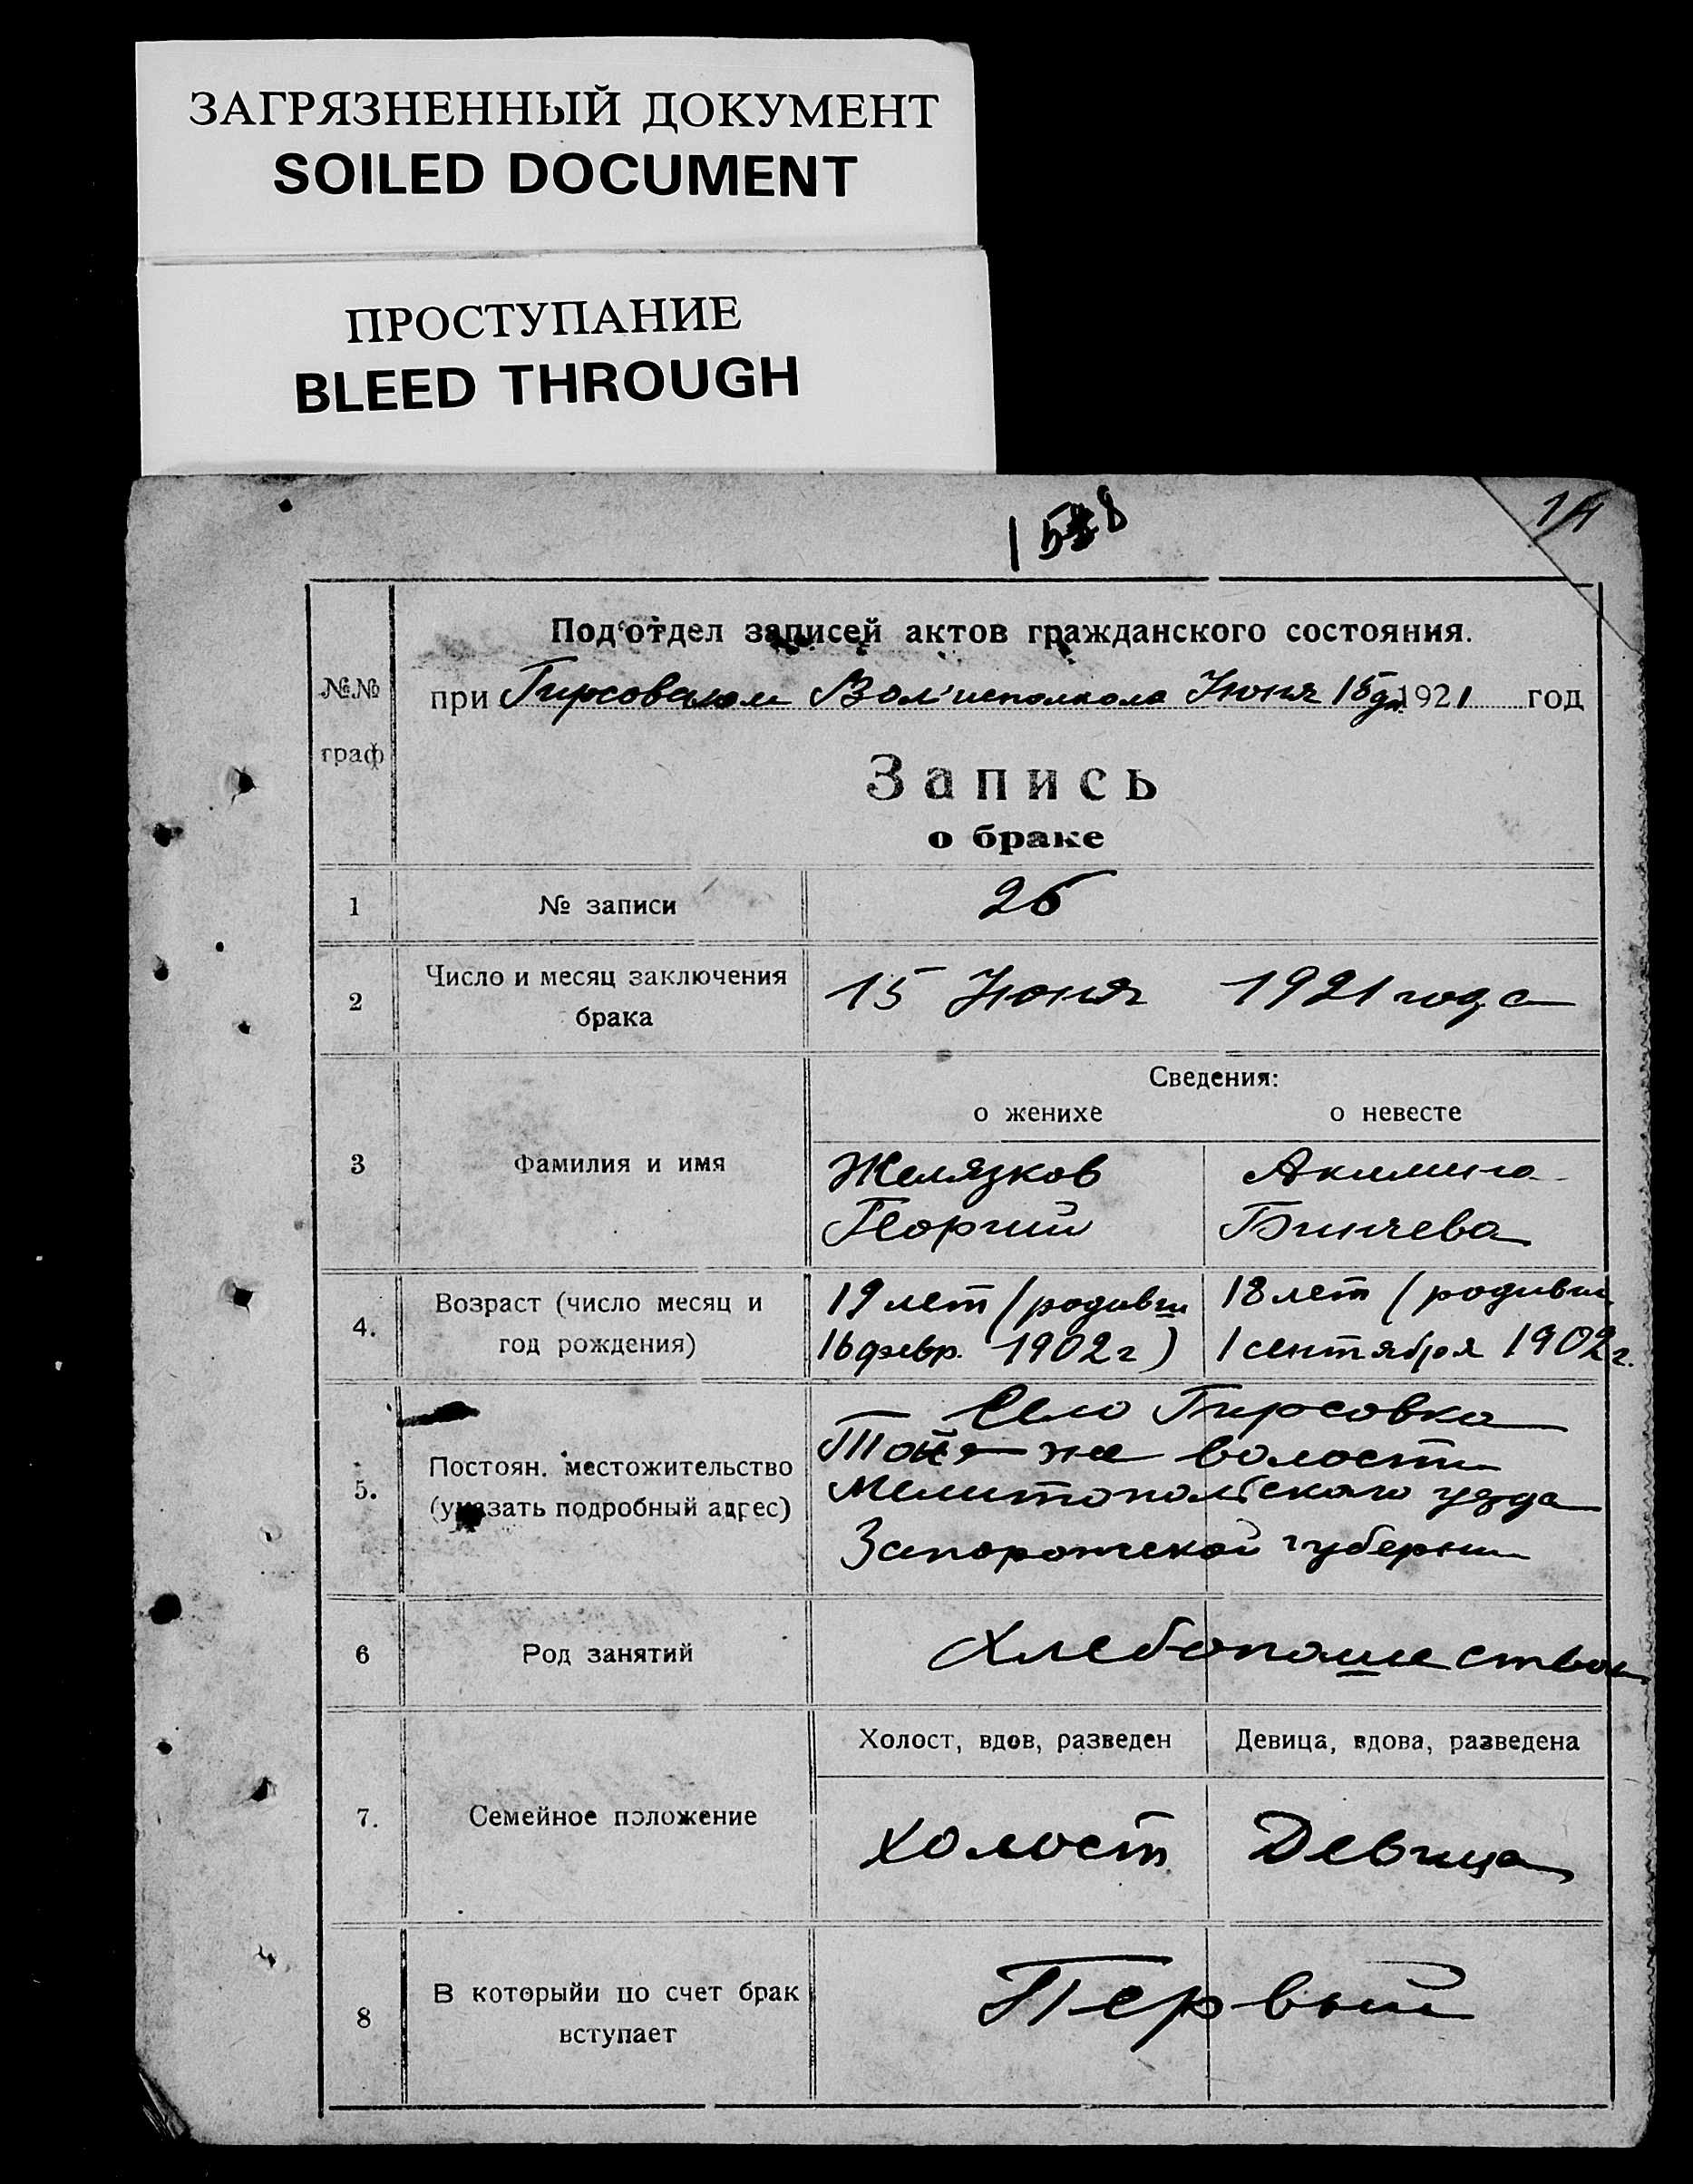 ЗАГРЯЗНЕННЫЙ ДОКУМЕНТ
SOILED DOCUMENT
ПРОСТУПАНИЕ
BLEED THROUGH
14
Под‘отдел записей актов гражданского состояния.
№№ граф
при Гирсовском Вол'исполкоме Июня 15 дн. 1921 год
Запись
о браке
1 № записи 26
2 Число и месяц заключения брака 15 Июня 1921 года
Сведения:
о женихе о невесте
3 Фамилия и имя
Желязков Акилина
Георгий Бинчева
4. Возраст (число месяц и год рождения)
19 лет (родивш 18 лет (родивш
16 февр. 1902 г) 1 сентября 1902 г.
5. Постоян. местожительство (указать подробный адрес)
Село Гирсовка
Той же волости
Мелитопольского уезда
Запорожской губернии
6 Род занятий Хлебопашеством
Холост, вдов, разведен Девица, вдова, разведена
7. Семейное положение Холост Девица
8 В которыйи по счет брак вступает Первый